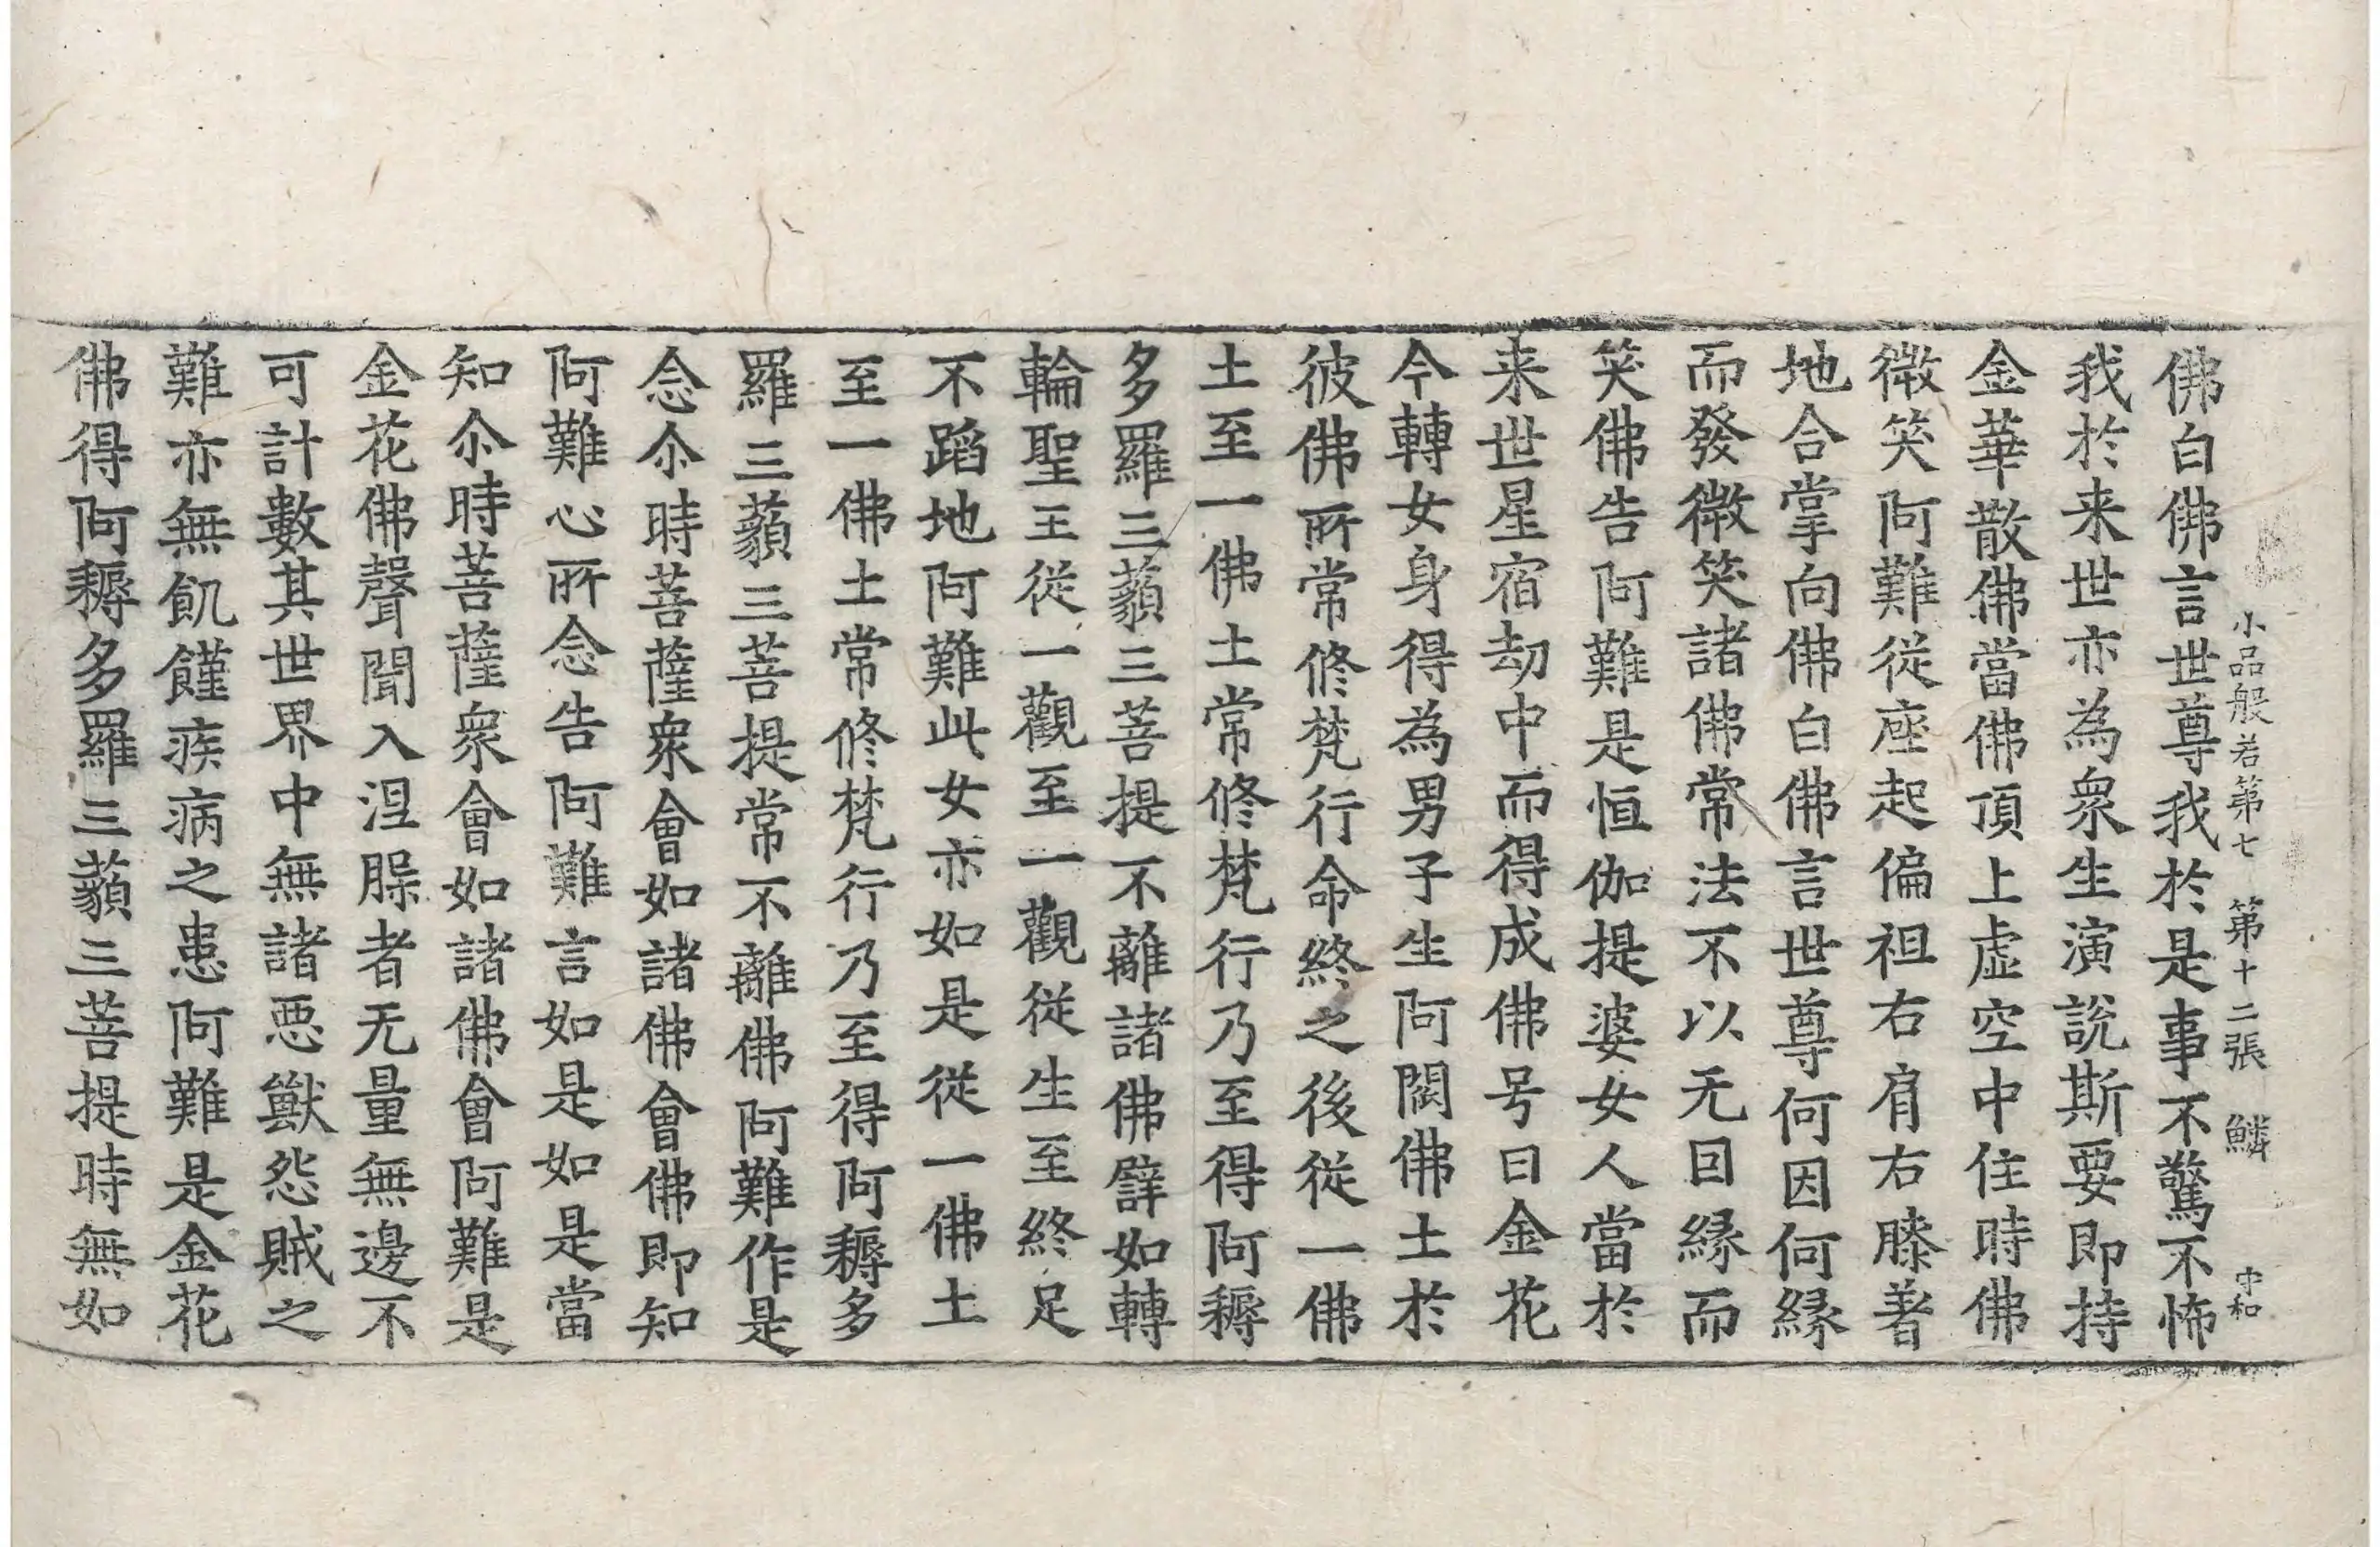 小品般若第七 第十二張 鱗 中和
佛白佛言世尊我於是事不驚不怖
我於来世亦為衆生演說斯要即持
金華散佛當佛頂上虛空中住時佛
微笑阿難從座起偏袒右肩右膝著
地合掌向佛白佛言世尊何因何縁
而發微笑諸佛常法不以无因縁而
笑佛告阿難是恒伽提婆女人當於
来世星宿劫中而得成佛号曰金花
今轉女身得為男子生阿閦佛土於
彼佛所常修梵行命終之後從一佛
土至一佛土常修梵行乃至得阿耨
多羅三藐三菩提不離諸佛譬如轉
輪聖王從一觀至一觀從生至終足
不蹈地阿難此女亦如是從一佛土
至一佛土常修梵行乃至得阿耨多
羅三藐三菩提常不離佛阿難作是
念尒時菩薩衆會如諸佛會佛即知
阿難心所念告阿難言如是如是當
知尒時菩薩衆會如諸佛會阿難是
金花佛聲聞入涅槃者无量無邊不
可計數其世界中無諸惡獸怨賊之
難亦無飢饉疾病之患阿難是金花
佛得阿耨多羅三藐三菩提時無如